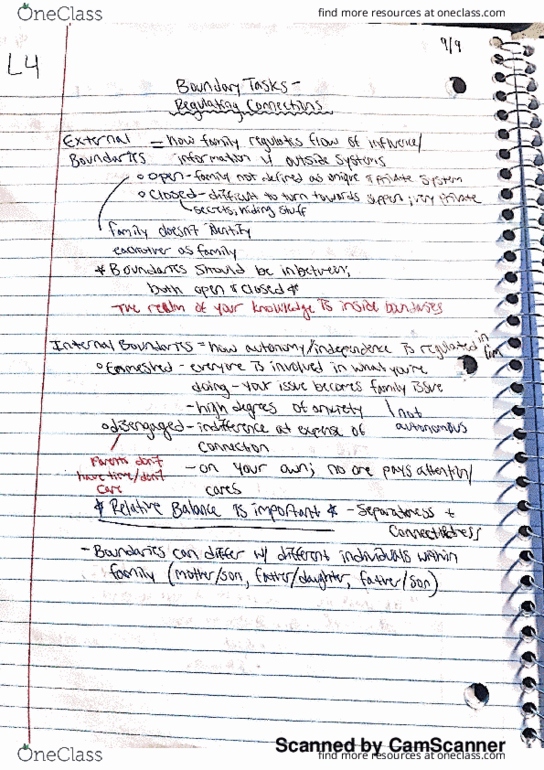 OneClass
find more resources at oneclass.com
9/9
L4
Boundary Tasks -
Regulating Connections
External = how family regulates flow of influence/
Boundaries information w/ outside systems
o open - family not defined as unique & private system
o closed - difficult to turn towards support, very private
secrets, hiding stuff
family doesn't identify
eachother as family
* Boundaries should be inbetween,
both open & closed *
The realm of your knowledge is inside boundaries
Internal Boundaries = how autonomy/independence is regulated in fam
o Enmeshed - everyone is involved in what you're
doing - your issue becomes family issue
- high degrees of anxiety | not
autonomous
o disengaged - indifference at expense of
connection
Parents don't
have time/don't
care
- on your own; no one pays attention/
cares
* Relative Balance is important * - Separateness +
Connectedness
- Boundaries can differ w/ different individuals within
family (mother/son, father/daughter, father/son)
Scanned by CamScanner
OneClass
find more resources at oneclass.com